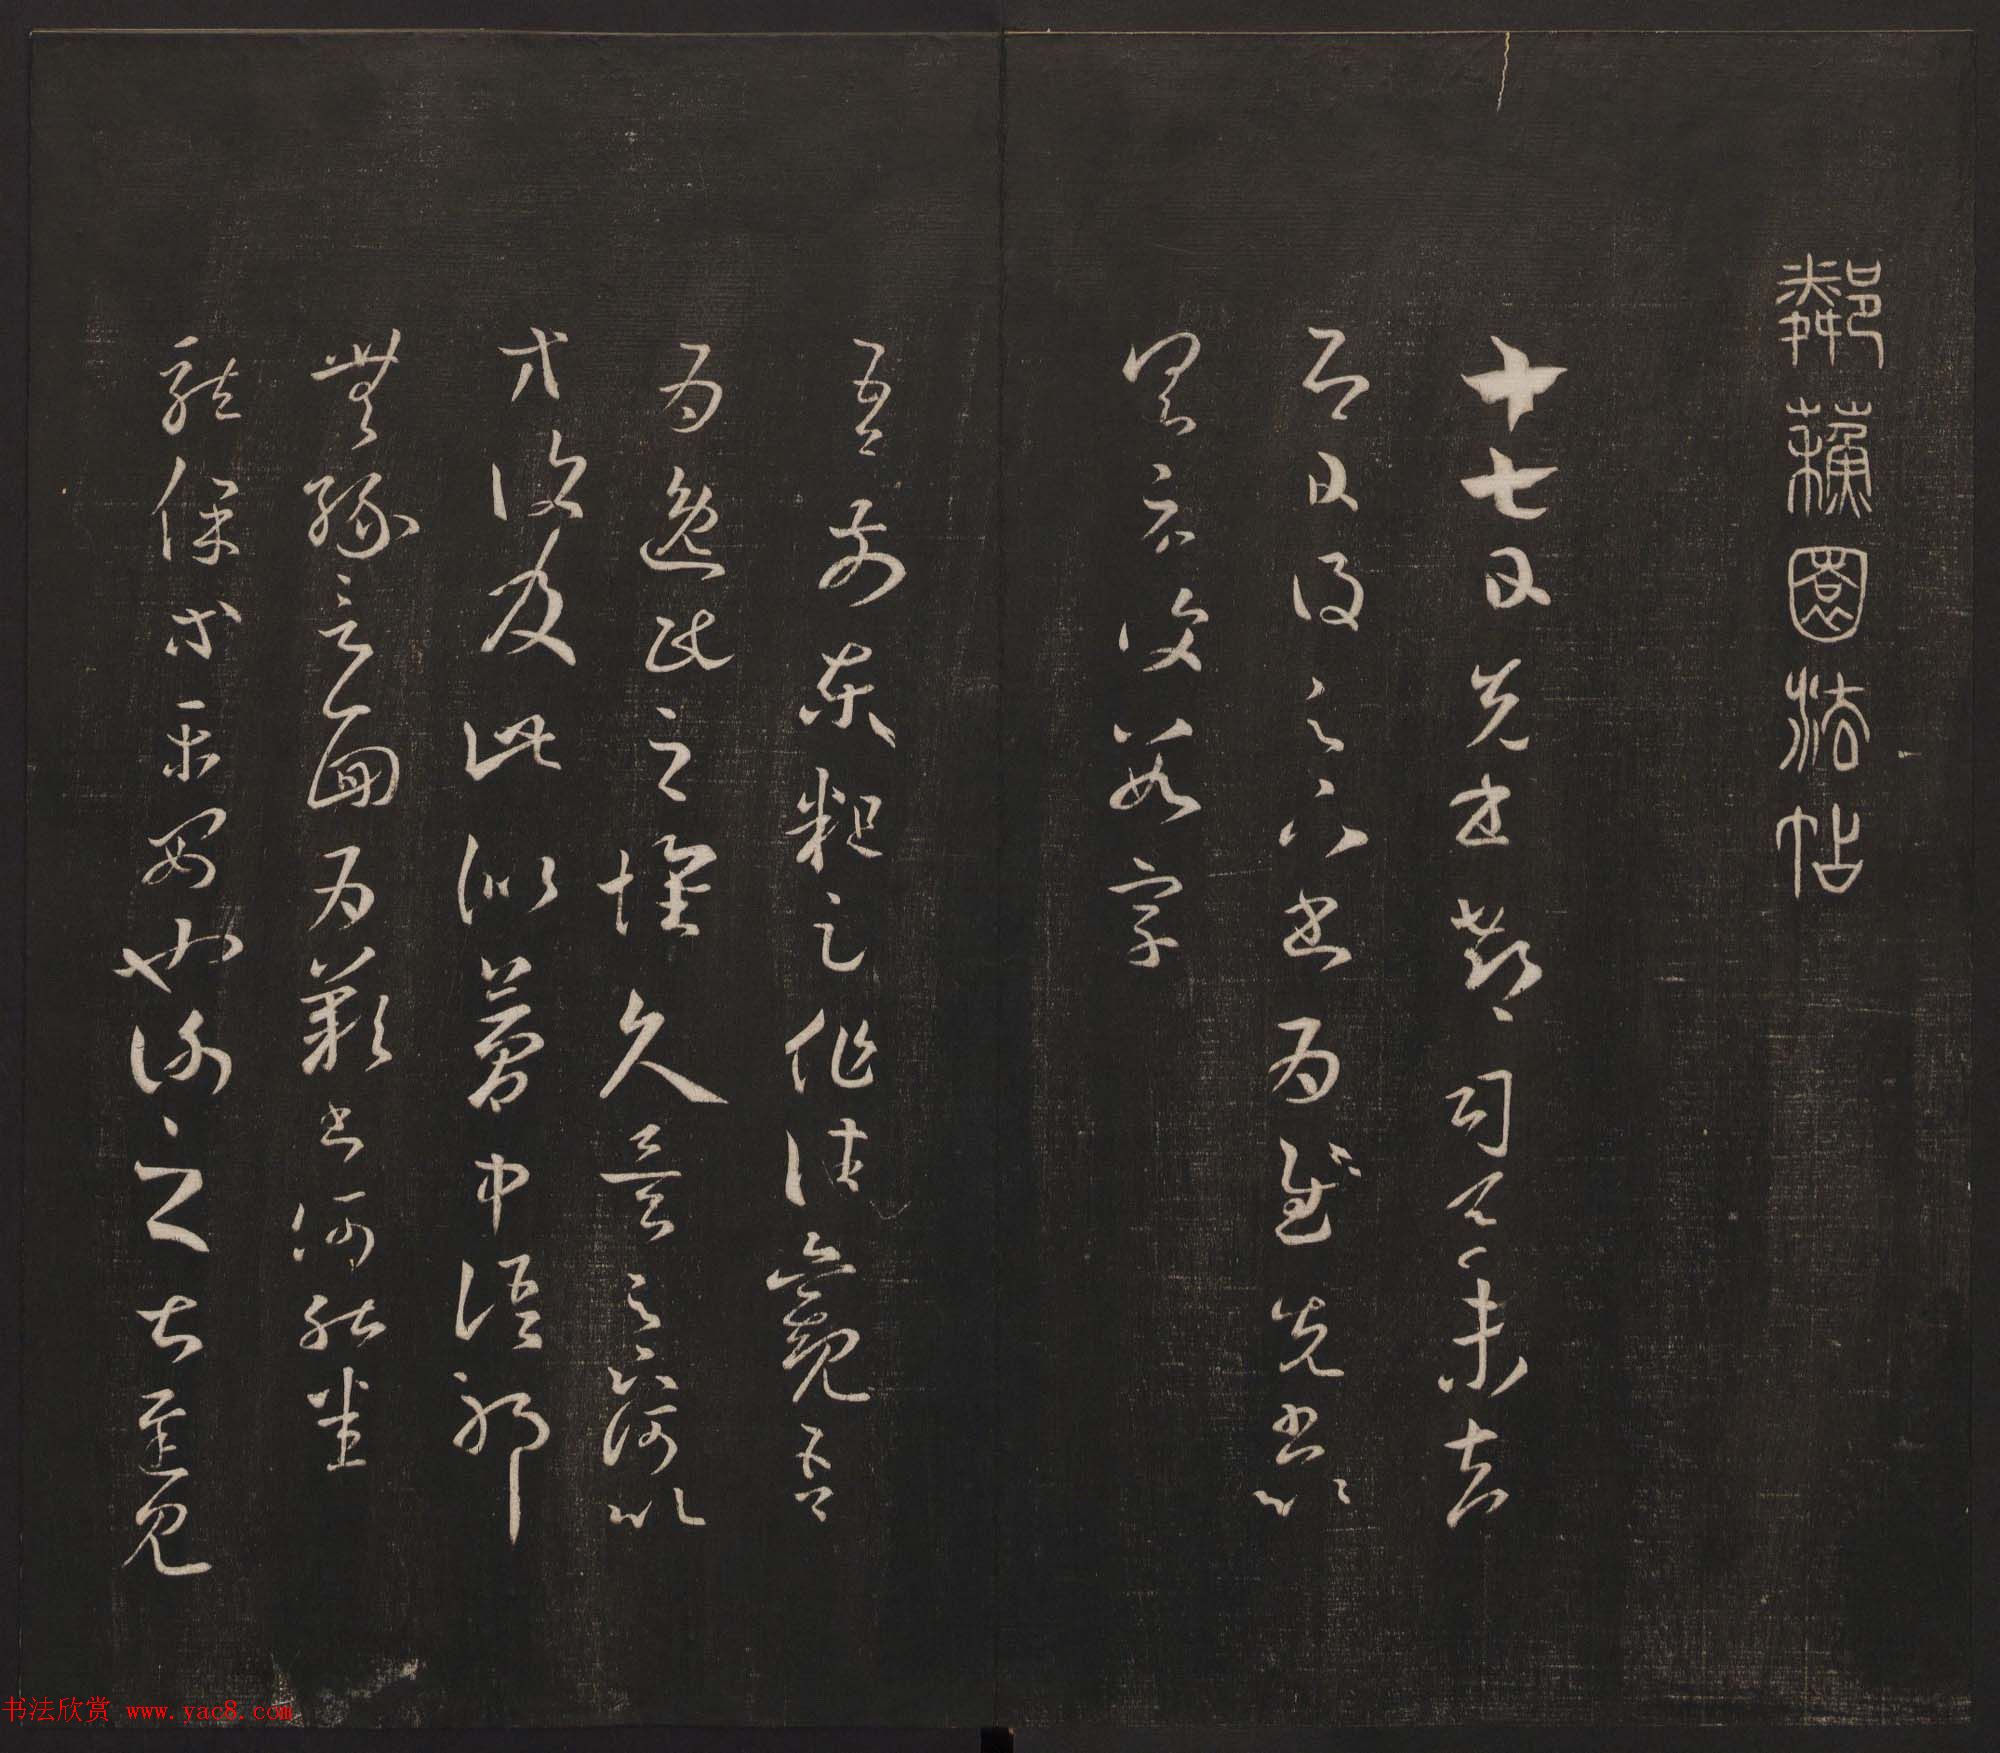 鄰蘇園法帖
十七日先書郗司馬未去
即日得足下書為慰先書以
具示復數字
吾前東粗足作佳觀吾
為逸民之懷久矣足下何以
方復及此似夢中語耶
無緣言面為歎書何能悉
龍保等平安也謝之甚遲見
书法欣赏 www.yac8.com